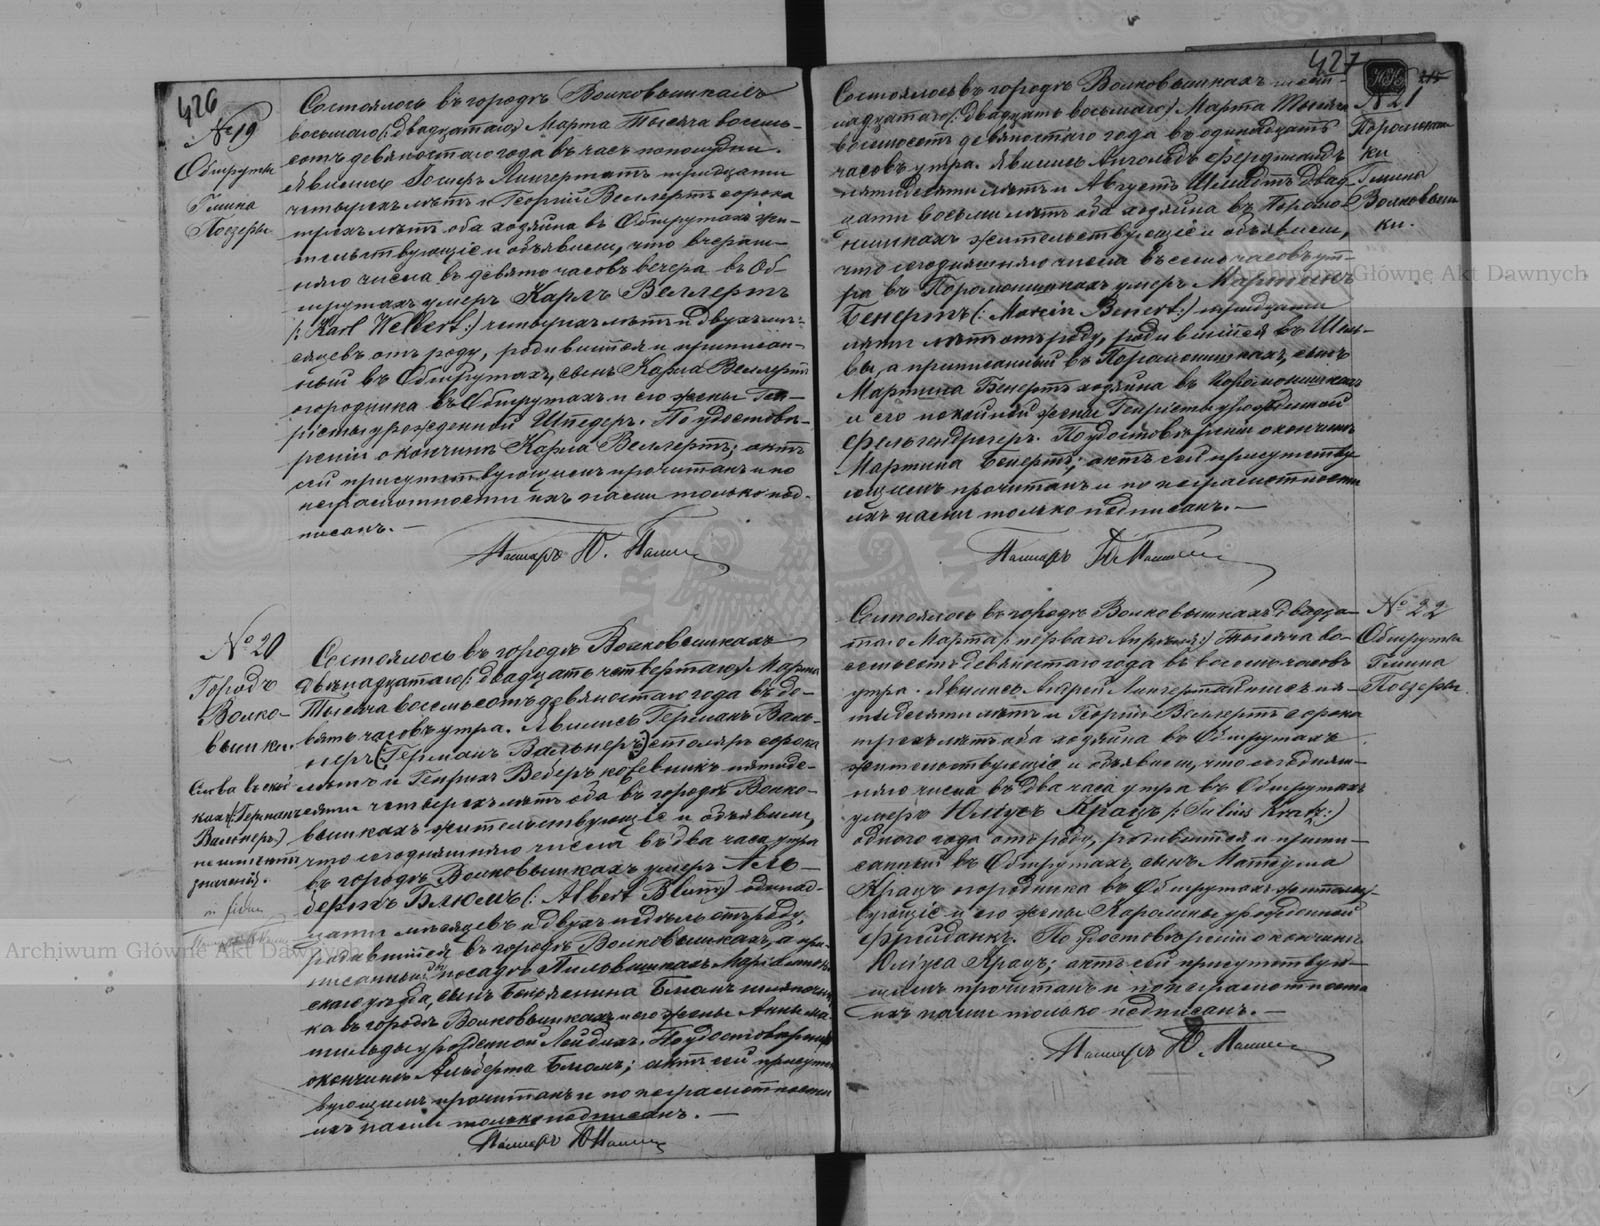 426
№ 19
Обшруты
Гмина
Поезеры
Состоялось въ городѣ Волковышкахъ
восьмаго /: двадцатаго Марта Тысяча восемь-
сотъ девяностаго года въ часъ пополудни.
Явились Лингертатъ тридцати
четырехъ лѣтъ и Георгій Веллертъ сорока
трехъ лѣтъ оба хозяина въ Обшрутахъ жи-
тельствующіе и объявили, что вчераш-
няго числа въ девять часовъ вечера въ Об-
шрутахъ умеръ Карлъ Веллертъ
/: Karl Wellert :/ четырехъ лѣтъ и двухъ мѣ-
сяцевъ отъ роду, родившійся и приписан-
ный въ Обшрутахъ, сынъ Карла Веллертъ
огородника въ Обшрутахъ и его жены Ген-
ріеты урожденной Шпедеръ. По удостовѣ-
реніи о кончинѣ Карла Веллертъ; актъ
сей присутствующимъ прочитанъ и по
неграмотности ихъ нами только под-
писанъ. —
Пасторъ
№ 20
Городъ
Волко-
вышки.
Слова въ скоб-
кахъ (Германъ
Вальнеръ)
не имѣютъ
значенія.
Состоялось въ городѣ Волковышкахъ
двѣнадцатаго /: двадцать четвертаго / Марта
Тысяча восемьсотъ девяностаго года въ де-
вять часовъ утра. Явились Германъ Валь-
неръ (Германъ Вальнеръ) столяръ сорока
лѣтъ и Генрихъ Веберъ кожевникъ пятиде-
сяти четырехъ лѣтъ оба въ городѣ Волко-
вышкахъ жительствующіе и объявили,
что сегодняшняго числа въ два часа утра
въ городѣ Волковышкахъ умеръ Аль-
бертъ Блюмъ (: Albert Blum) одинад-
цати мѣсяцевъ и двухъ недѣль отъ роду,
родившійся въ городѣ Волковышкахъ, а при-
писанный въ посадѣ Пильвишкахъ Маріампольс-
каго уѣзда, сынъ Беньямина Блюмъ
ка въ городѣ Волковышкахъ и его жены Анны Ма-
тильды урожденной Лейднхъ. По удостовѣреніи
о кончинѣ Альберта Блюмъ; актъ сей присутст-
вующимъ прочитанъ и по неграмотности
ихъ нами только подписанъ. —
Пасторъ
427
№ 21
Поромниш-
ки
Гмина
Волковыш-
ки.
Состоялось въ городѣ Волковышкахъ шест-
надцатаго /: двадцать восьмаго / Марта Тысяча
восемьсотъ девяностаго года въ одинадцать
часовъ утра. Явились Фердинандъ
пятидесяти лѣтъ и Августъ Шмидтъ двад-
цати восьми лѣтъ оба хозяина въ
жительствующіе и объявили,
что сегодняшняго числа въ семь часовъ ут-
ра въ умеръ Мартинъ
Бенертъ (: Marcin Benert :) тридцати
пяти лѣтъ отъ роду, родившійся въ Шиль-
вы, а приписанный въ сынъ
Мартина Бенертъ хозяина въ
и его покойной жены Генріеты урожденной
Фельгендрегеръ. По удостовѣреніи о кончинѣ
Мартина Бенертъ; актъ сей присутству-
ющимъ прочитанъ и по неграмотности
ихъ нами только подписанъ. —
Пасторъ
№ 22
Обшруты
Гмина
Поезеры.
Состоялось въ городѣ Волковышкахъ двадца-
таго Марта /: перваго Апрѣля :/ Тысяча во-
семьсотъ девяностаго года въ восемь часовъ
утра. Явились Андрей пя-
тидесяти лѣтъ и Георгій Веллертъ сорока
трехъ лѣтъ оба хозяина въ Обшрутахъ
жительствующіе и объявили, что сегодняш-
няго числа въ два часа утра въ Обшрутахъ
умеръ Юліусъ Крацъ /: Julius Kratz :/
одного года отъ роду, родившійся и припи-
санный въ Обшрутахъ, сынъ
Крацъ огородника въ Обшрутахъ жительст-
вующіе и его жены Каролины урожденной
Фрейданкъ. По удостовѣреніи о кончинѣ
Юліуса Крацъ; актъ сей присутствую-
щимъ прочитанъ и по неграмотности
ихъ нами только подписанъ. —
Пасторъ
Archiwum Główne Akt Dawnych
Archiwum Główne Akt Dawnych